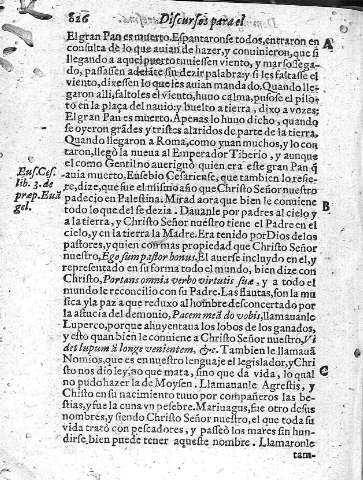 826 Discursos para el
El gran Pan es muerto. Espantaronse todos, entraron en
consulta de lo que auian de hazer, y conuinieron, que si
llegando a aquel puerto tuuiessen viento, y mar sossega-
do, passassen adelãte sin dezir palabra: y si les faltasse el
viento, dixessen lo que les auian mandado. Quando lle-
garon alli, faltoles el viento, huuo calma, pusose el pilo-
to en la plaça del nauio: y buelto a tierra, dixo a vozes:
El gran Pan es muerto. Apenas lo huuo dicho, quando
se oyeron grãdes y tristes alaridos de parte de la tierra.
Quando llegaron a Roma, como yuan muchos, y lo con-
taron, llegò la nueua al Emperador Tiberio, y aunque
el como Gentil no aueriguò quien era este gran Pan q̃
auia muerto, Eusebio Cesariense, que tambien lo refie-
re, dize, que fue el mismo año que Christo Señor nuestro
padecio en Palestina. Mirad aora que bien le conuiene
todo lo que del se dezia. Dauanle por padres al cielo y
a la tierra, y Christo Señor nuestro tiene el Padre en el
cielo, y en la tierra la Madre. Era tenido por Dios de los
pastores, y quien con mas propiedad que Christo Señor
nuestro, Ego sum pastor bonus. El auerse incluydo en el, y
representado en su forma todo el mundo, bien dize con
Christo, Portans omnia verbo virtutis suæ, y a todo el
mundo le reconcilio con su Padre. Las flautas, son la mu
sica y la paz a que reduxo al hombre desconcertado por
la astucia del demonio, Pacem meã do vobis, llamauanle
Luperco, porque ahuyentaua los lobos de los ganados,
y esto quan bien le conuiene a Christo Señor nuestro, Vi
det lupum à longe venientem, &c. Tambien le llamauã
Nomios, que es en nuestro lenguaje el legislador, y Chri
sto nos dio ley, no que mata, sino que da vida, lo qual
no pudo hazer la de Moysen. Llamauanle Agrestis, y
Christo en su nacimiento tuuo por compañeros las be-
stias, y fue la cuna vn pesebre. Mariuagus, fue otro de sus
nombres, y siendo Christo Señor nuestro, el que toda su
vida tratò con pescadores, y passeò los mares sin hun-
dirse, bien puede tener aqueste nombre. Llamaronle
tam-
A
Eus. Ces.
lib. 3. de
prep. Euã
gel.
B
C